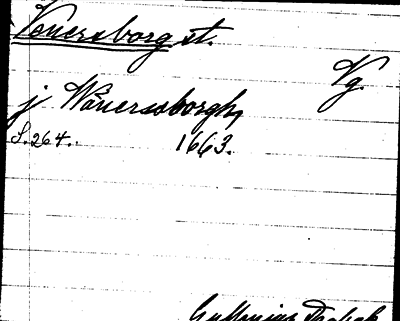 Vänersborg st.
Vg.
j Wänersborgh,
S. 264. 1663.